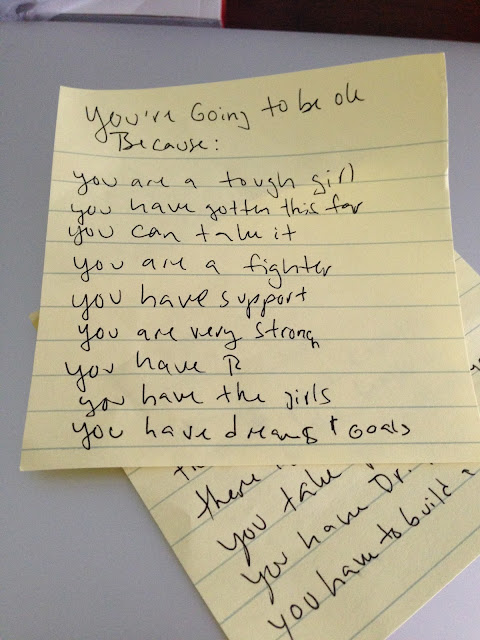 You're Going to be ok
Because:
you are a tough girl
you have gotten this far
you can take it
you are a fighter
you have support
you are very strong
you have R
you have the girls
you have dreams + Goals
there
you take
you have Dr.
you have to build a